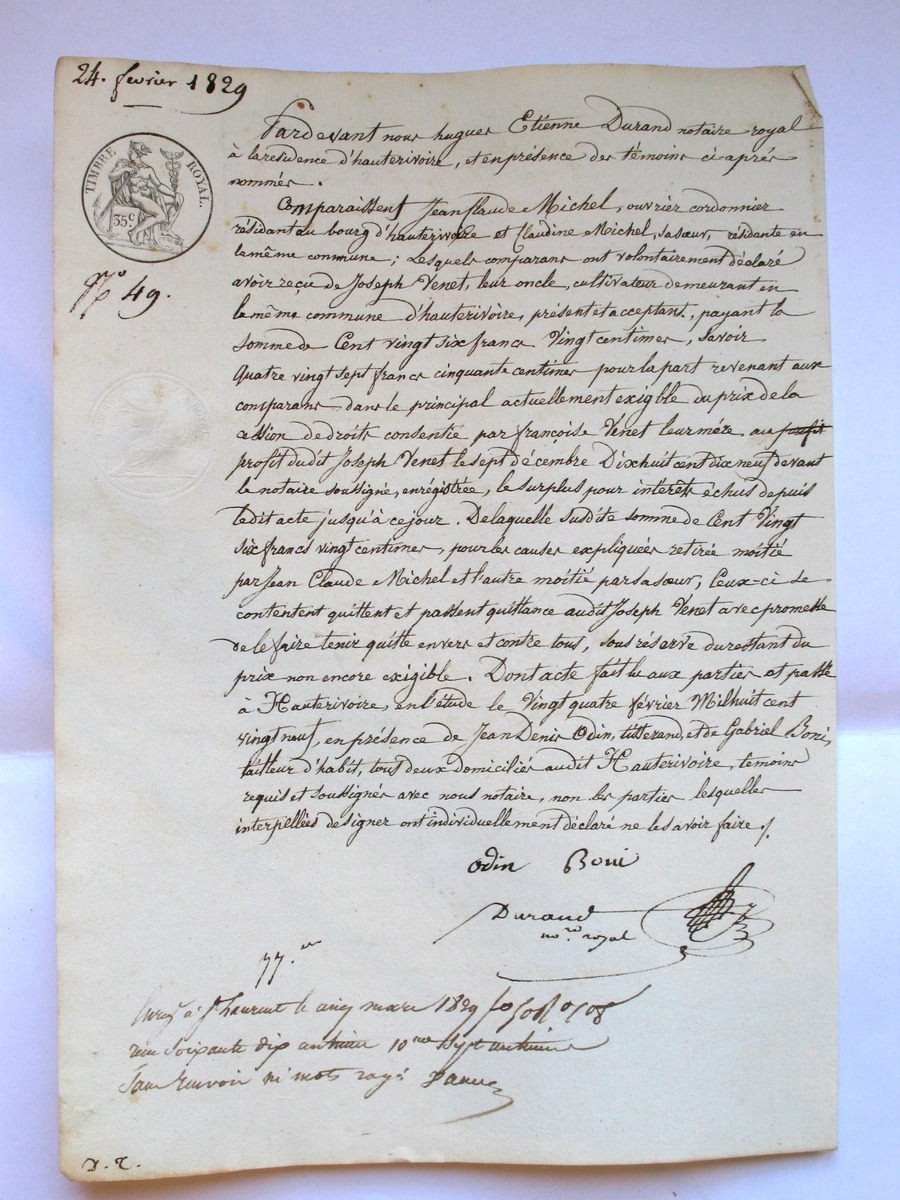 24. fevrier 1829
TIMBRE ROYAL.
35 c
N° 49.
Pardevant nous hugues Etienne Durand notaire royal
à la résidence d'hauterivoire, et en présence des témoins ci-après
nommés.
Comparaissent Jean Claude Michel, ouvrier cordonnier
résidant au bourg d'hauterivoire et Claudine Michel, sa sœur, résidante en
la même commune; Lesquels comparans ont volontairement déclaré
avoir reçu de Joseph Venet, leur oncle, cultivateur demeurant en
la même commune d'hauterivoire, présent et acceptant, payant la
somme de Cent vingt six francs Vingt centimes, Savoir
Quatre vingt sept francs cinquante centimes pour la part revenant aux
comparans dans le principal actuellement exigible du prix de la
cession de droits consentie par françoise Venet leur mère au profit
profit dudit Joseph Venet le sept décembre Dix huit cent dix neuf devant
le notaire soussigné, enrégistrée, le surplus pour intérêts échus depuis
ledit acte jusqu'à ce jour. De laquelle susdite somme de Cent Vingt
six francs vingt centimes, pour les causes expliquées retirée moitié
par Jean Claude Michel et l'autre moitié par sa sœur, Ceux-ci se
contentent quittent et passent quittance audit Joseph Venet avec promesse
de le faire tenir quitte envers et contre tous, sous réserve du restant du
prix non encore exigible. Dont acte fait lu aux parties et passé
à Hauterivoire, en l'étude le Vingt quatre février Mil huit cent
vingt neuf, en présence de Jean Denis Odin, et de Gabriel Boni,
tailleur d'habit, tous deux domiciliés audit Hauterivoire, témoins
requis et soussignés avec nous notaire, non les parties lesquelles
interpellées de signer ont individuellement déclaré ne le savoir faire ./.
Odin Boni
Durand
no.re royal
77.
à St Laurent le cinq mars 1829
soixante dix centimes 10.me sept centimes
Sans renvoi ni mots rayés
D. R.